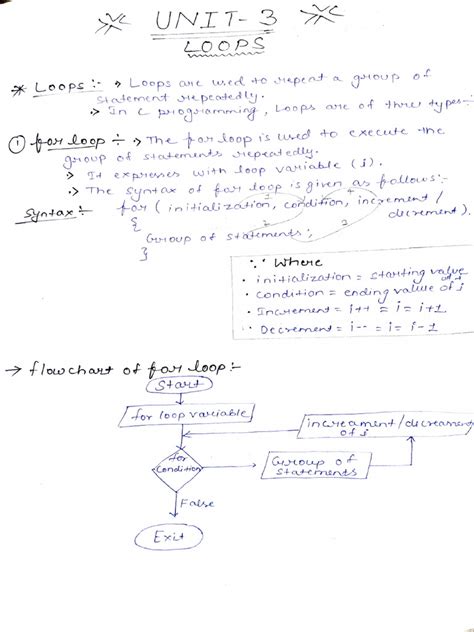 UNIT-3
LOOPS
* Loops:- → Loops are used to repeat a group of
statement repeatedly.
→ In C programming, Loops are of three types:-
① for loop ÷ → The for loop is used to execute the
group of statements repeatedly.
→ It expresses with loop variable (i).
→ The syntax of for loop is given as follows:-
Syntax:- for ( initialization, condition, increment /
decrement).
{
Group of statements;
}
∵ Where
• initialization = starting value of i
• Condition = ending value of i
• Increment = i++ = i = i+1
• Decrement = i-- = i = i-1
→ flowchart of for loop:-
Start
for loop variable
increament/decreament
of i
for
Condition
Group of
statements
False
Exit